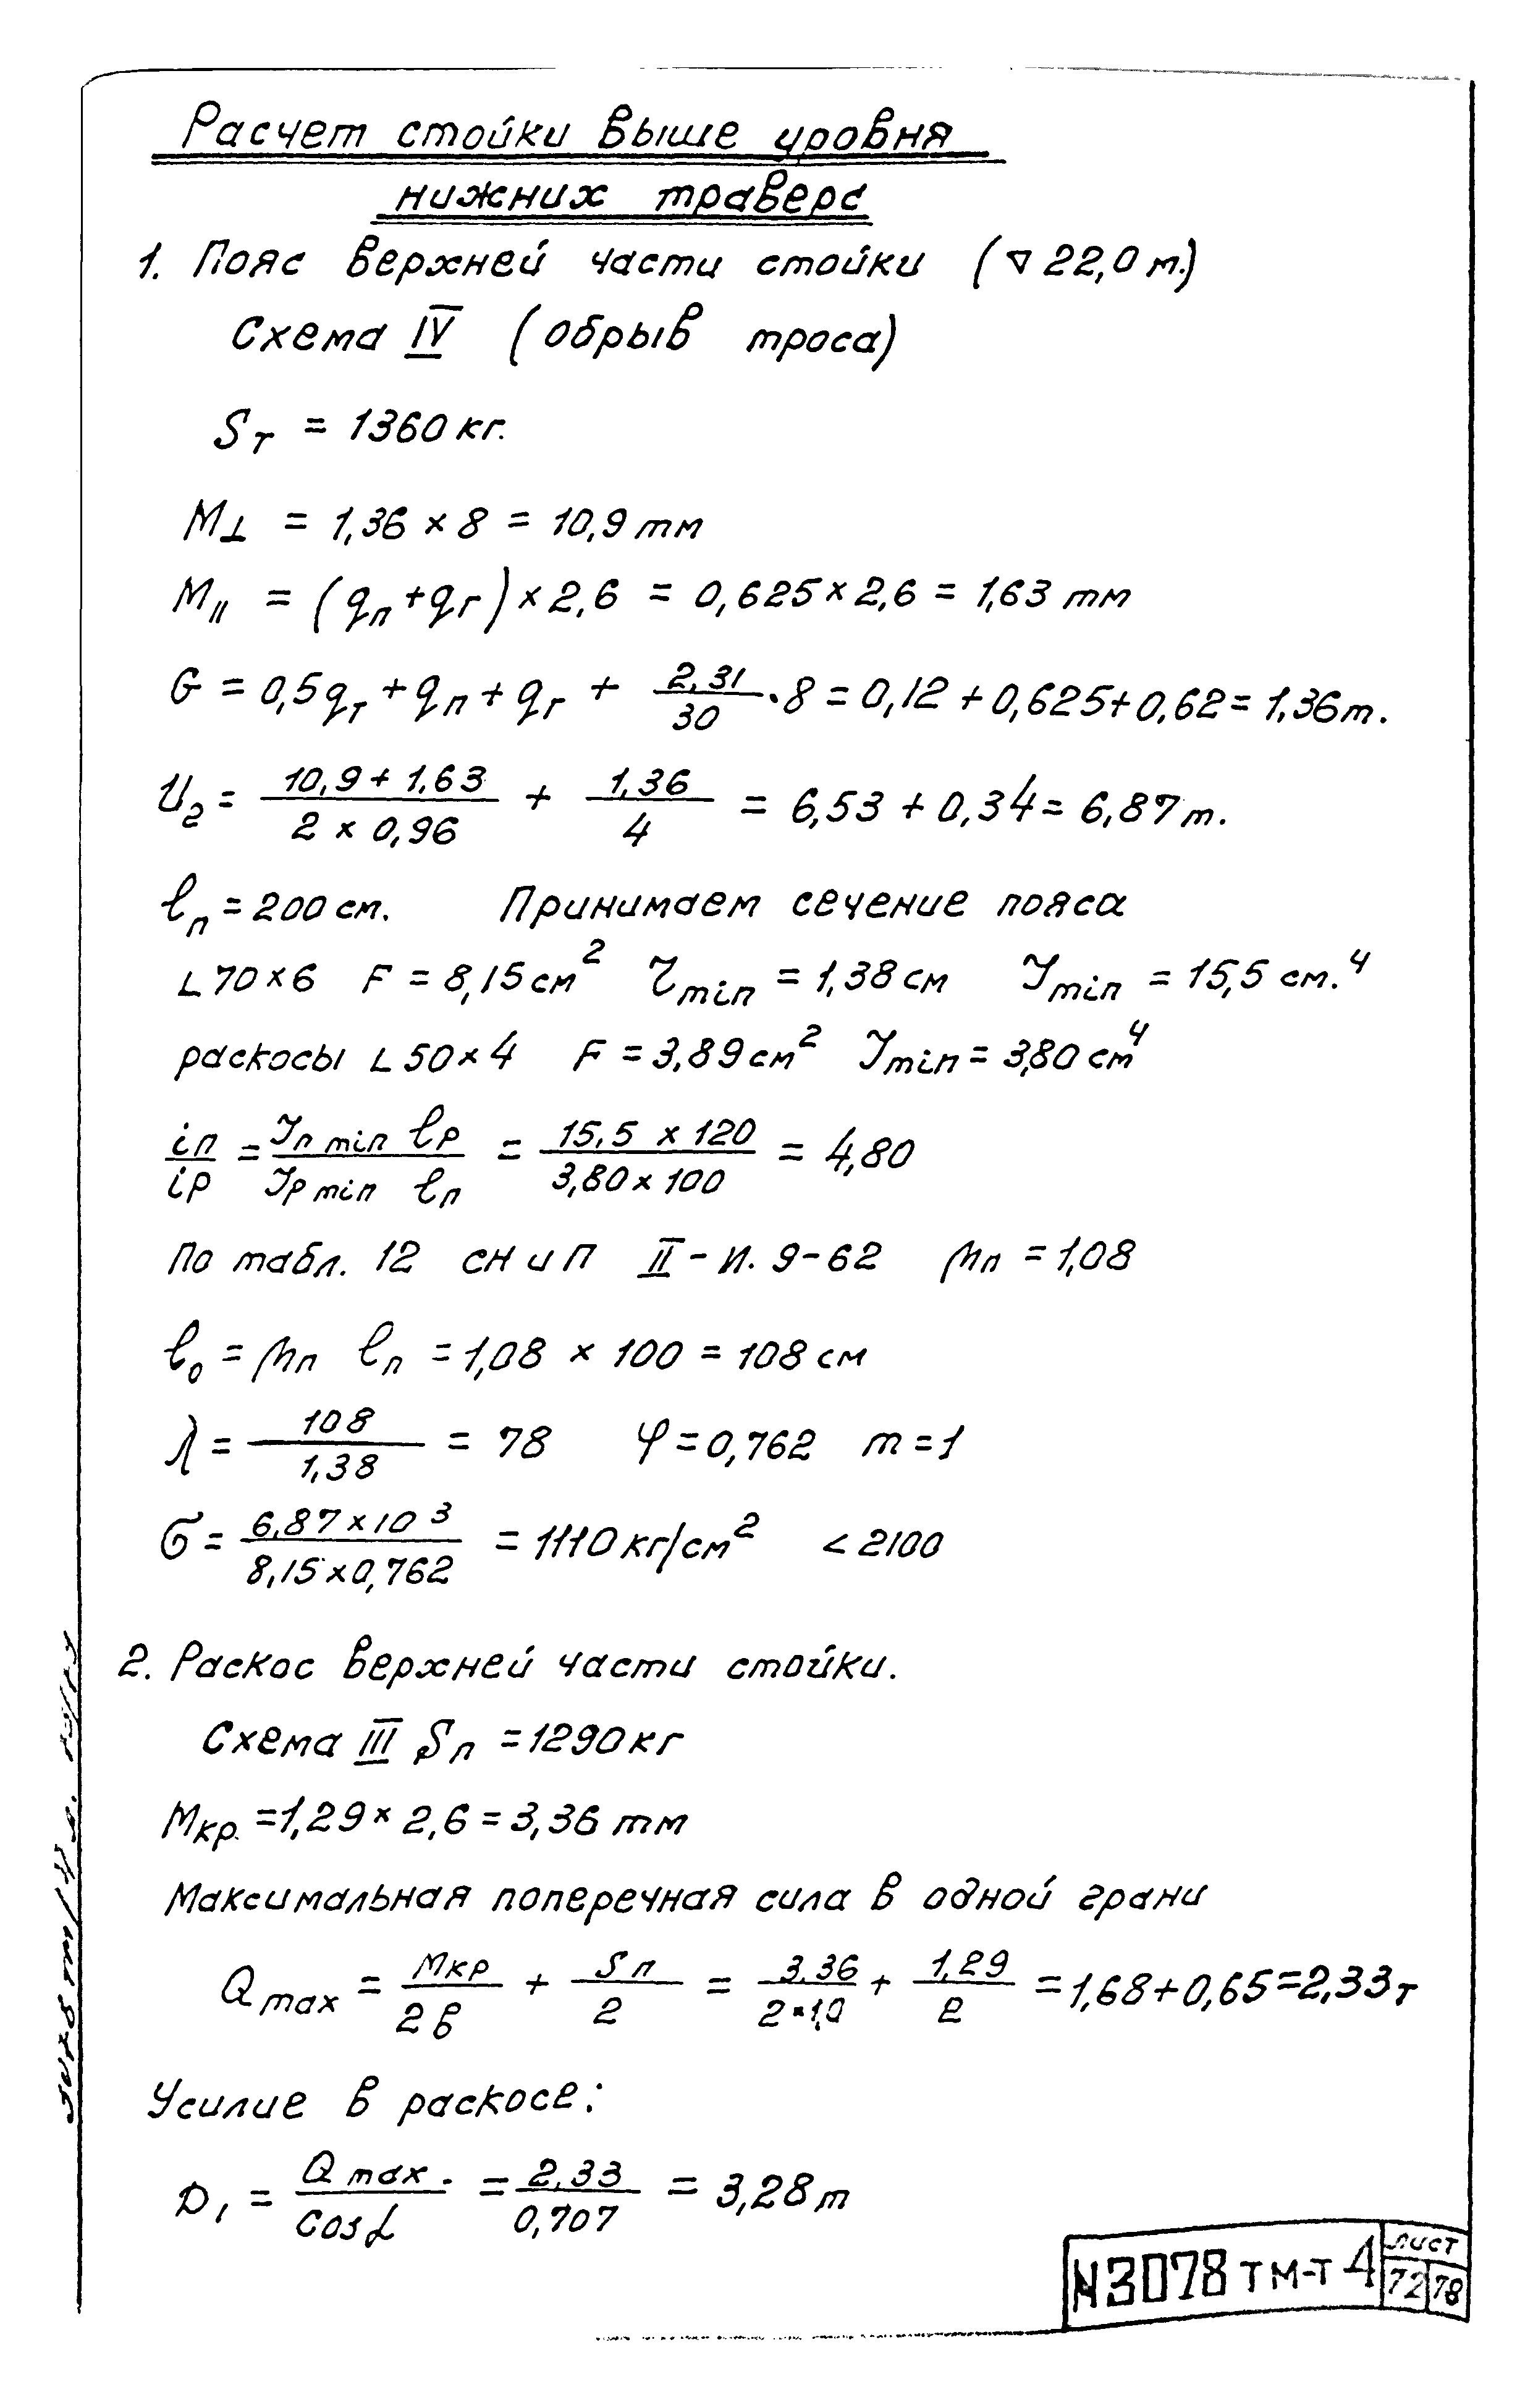 Расчет стойки выше уровня
нижних траверс
1. Пояс верхней части стойки (▽ 22,0 м.)
Схема IV (обрыв троса)
Sт = 1360 кг.
M⊥ = 1,36 × 8 = 10,9 тм
M|| = (qп + qг) × 2,6 = 0,625 × 2,6 = 1,63 тм
G = 0,5qт + qп + qг + 2,31/30 · 8 = 0,12 + 0,625 + 0,62 = 1,36 т.
U2 = (10,9 + 1,63)/(2 × 0,96) + 1,36/4 = 6,53 + 0,34 = 6,87 т.
ℓп = 200 см. Принимаем сечение пояса
∟70×6 F = 8,15 см² τmin = 1,38 см Jmin = 15,5 см.⁴
раскосы ∟50×4 F = 3,89 см² Jmin = 3,80 см⁴
iп/iр = (Jп min ℓр)/(Jр min ℓп) = (15,5 × 120)/(3,80 × 100) = 4,80
По табл. 12 СНиП II-И. 9-62 μп = 1,08
ℓ₀ = μп ℓп = 1,08 × 100 = 108 см
λ = 108/1,38 = 78 φ = 0,762 m = 1
σ = (6,87 × 10³)/(8,15 × 0,762) = 1110 кг/см² < 2100
2. Раскос верхней части стойки.
Схема III Sп = 1290 кг
Mкр. = 1,29 × 2,6 = 3,36 тм
Максимальная поперечная сила в одной грани
Q max = Mкр/2в + Sп/2 = 3,36/(2×1,0) + 1,29/2 = 1,68 + 0,65 = 2,33 т
Усилие в раскосе:
D₁ = Q max./cos α = 2,33/0,707 = 3,28 т
N3078 тм-т 4 лист 72 78